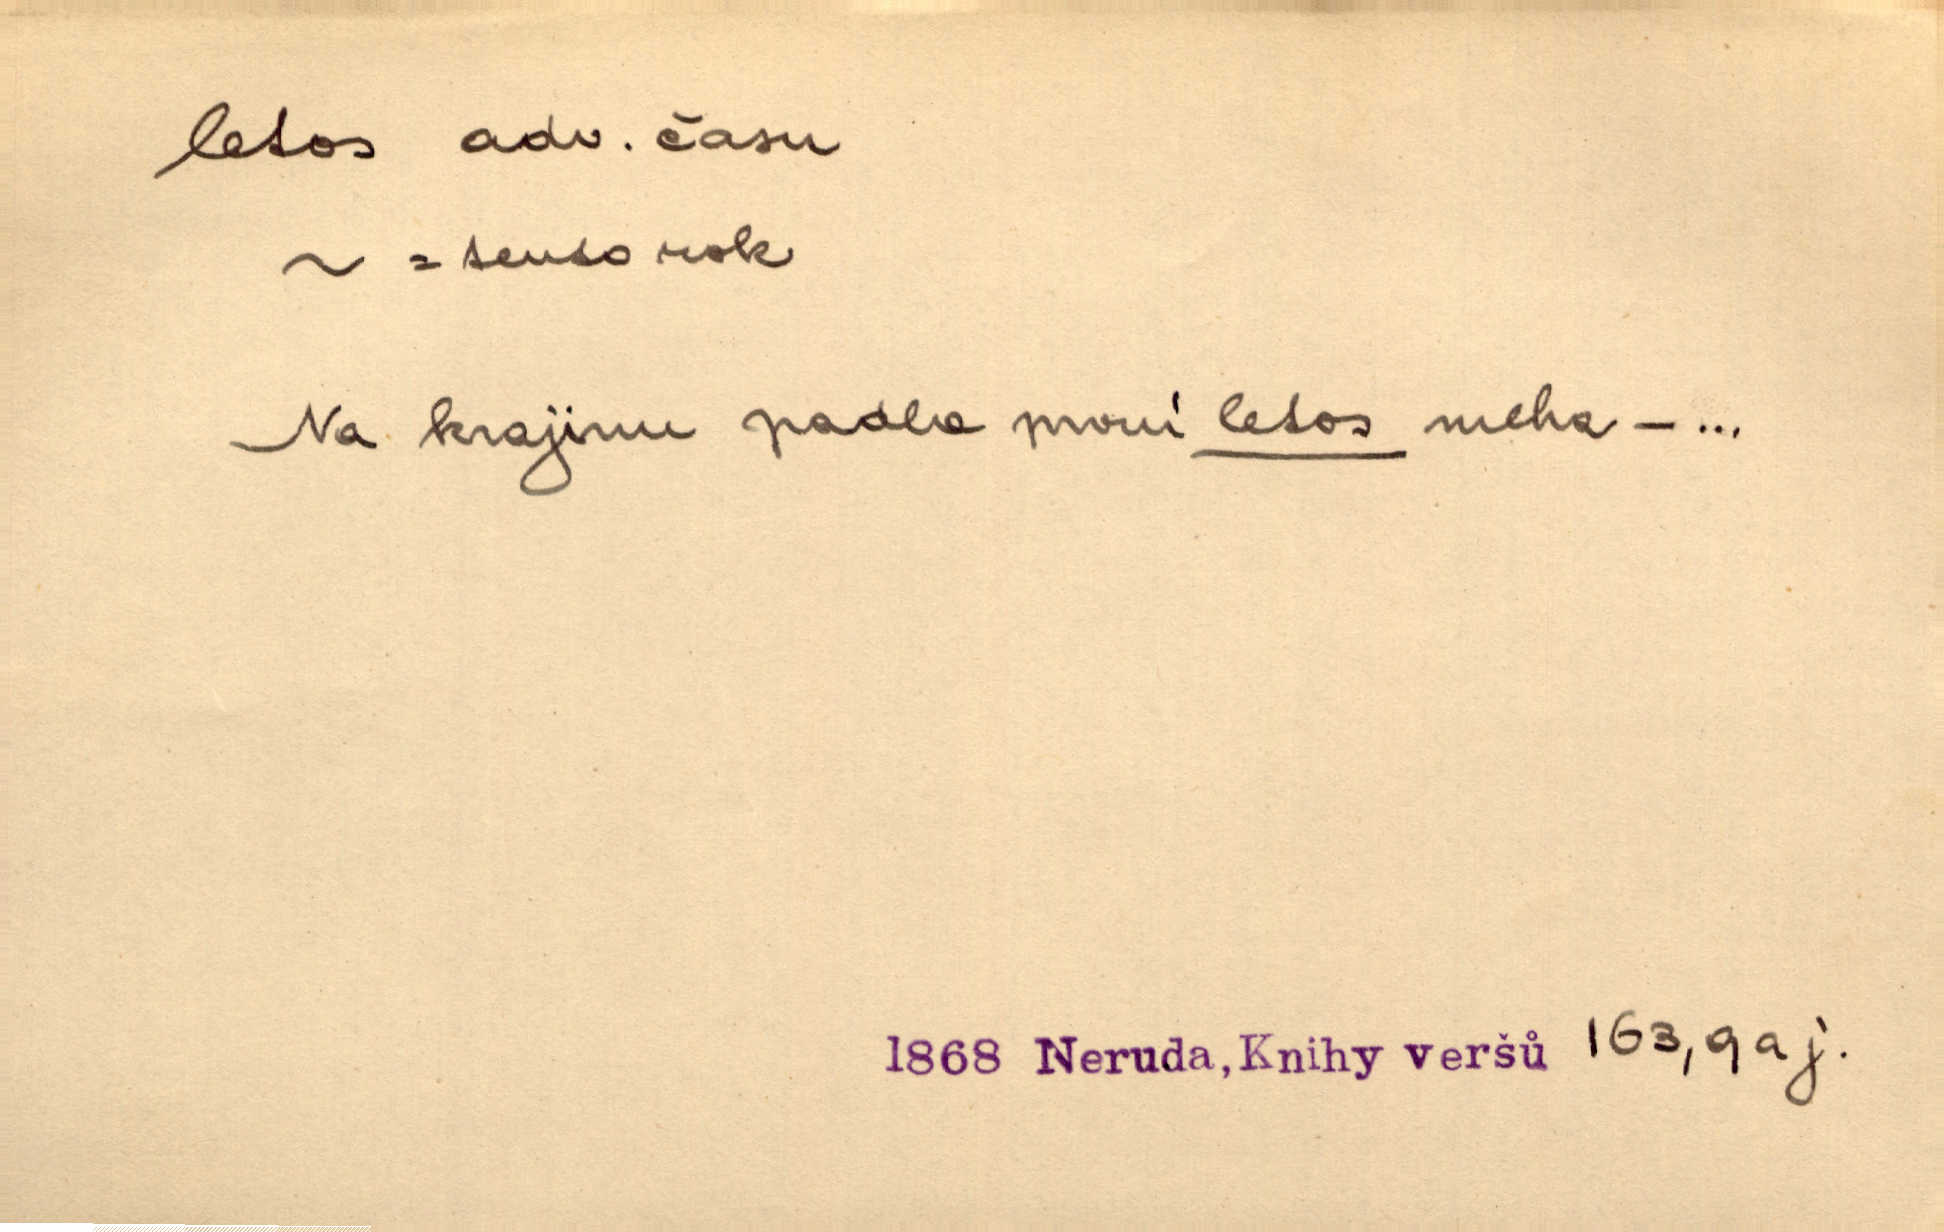 letos adv. času
~ = tento rok
Na krajinu padla první letos mlha – ...
1868 Neruda, Knihy veršů 163, 9 a j.